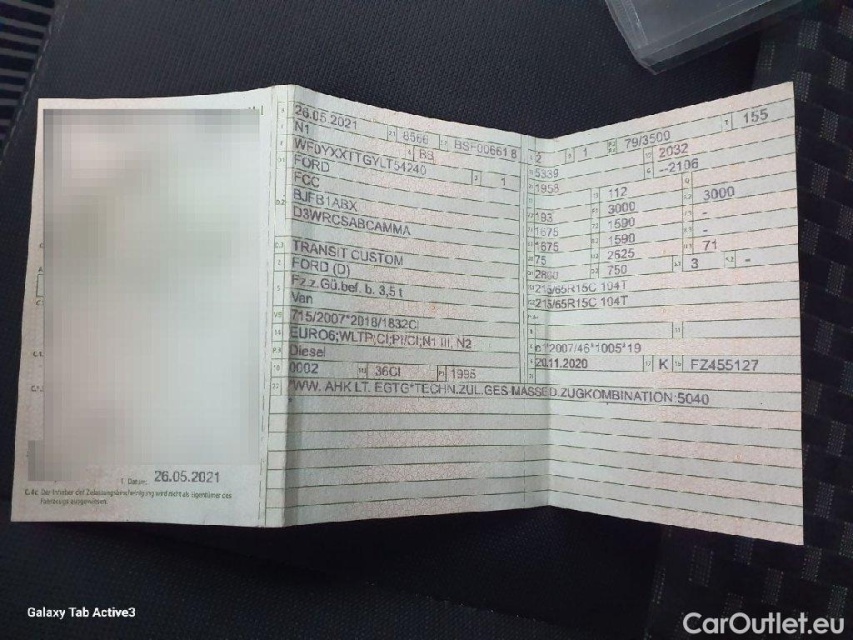 26.05.2021 8566 BSF00661 8
N1 BB
WF0YXXTTGYLT54240 1
FORD
FCC
BJFB1ABX
D3WRCSABCAMMA
TRANSIT CUSTOM
FORD (D)
Fz.z.Gü.bef. b. 3,5 t
Van
715/2007*2018/1832CI
EURO6;WLTP;CI;PI/CI;N1 III, N2
Diesel
0002 36CI 1995
*WW. AHK LT. EGTG*TECHN.ZUL.GES.MASSE D.ZUGKOMBINATION:5040
2 1 79/3500 155
5339 2032
1958 --2106
193 112
3000 3000
1675 1590 -
1675 1590 -
75 2525 71
2800 750 3 -
215/65R15C 104T
215/65R15C 104T
e1*2007/46*1005*19
20.11.2020 K FZ455127
I. Datum: 26.05.2021
C.4c Der Inhaber der Zulassungsbescheinigung wird nicht als Eigentümer des
Fahrzeugs ausgewiesen.
Galaxy Tab Active3
CarOutlet.eu